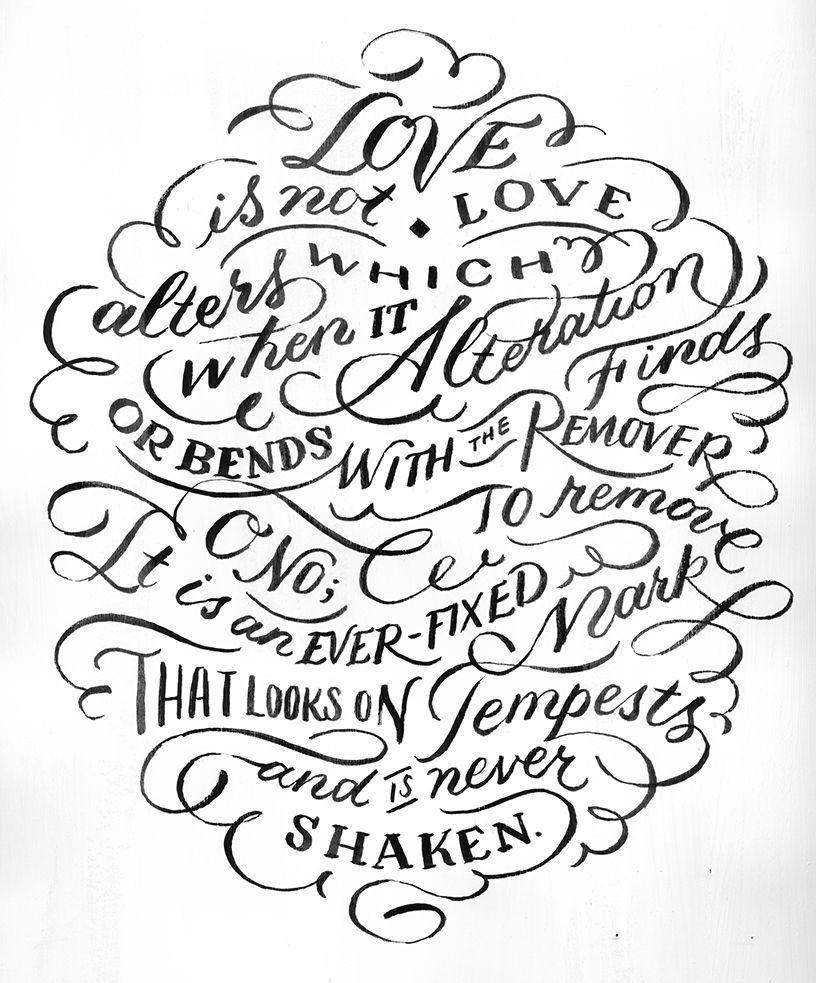 LOVE
is not LOVE
WHICH
alters
when IT Alteration
Finds
OR BENDS WITH THE REMOVER
TO remove
O No;
It is an EVER-FIXED Mark
THAT LOOKS ON Tempests
and IS never
SHAKEN.